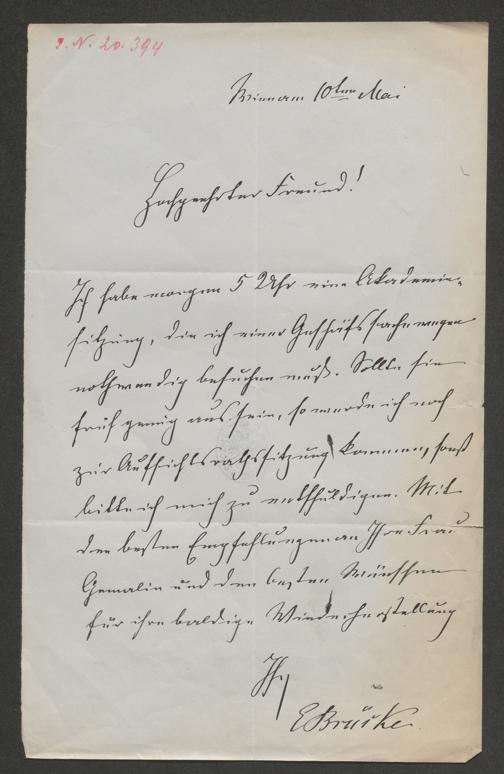 I. N. 20.394
Wien am 10ten Mai
Hochgeehrter Freund!
Ich habe morgen 5 Uhr eine Akademie-
sitzung, die ich einer Geschäftssache wegen
nothwendig besuchen muß. Sollte sie
früh genug aus sein, so werde ich noch
zur Aufsichtsrathssitzung kommen, sonst
bitte ich mich zu entschuldigen. Mit
den besten Empfehlungen an Ihre Frau
Gemalin und den besten Wünschen
für ihre baldige Wiederherstellung
Ihr
E Brücke.